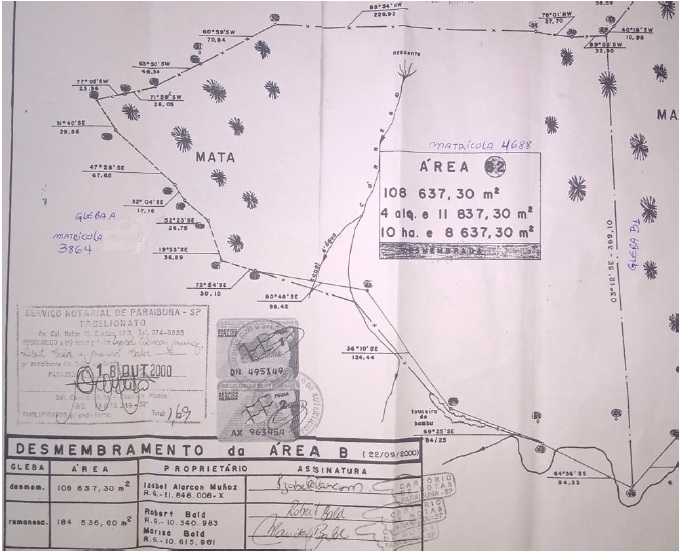 88°54'SW
229,92
76°01'NW
27,70
58,59
40°18'SW
10,98
32,90
60°59'SW
70,84
63°50'SW
48,34
77°05'SW
23,96
71°58'SW
26,05
NASCENTE
MATA
MA
MATRÍCULA 4688
ÁREA B2
108 637,30 m²
4 alq. e 11 837,30 m²
10 ha. e 8 637,30 m²
DESMEMBRADA
31°40'SE
29,66
47°28'SE
67,63
32°04'SE
17,16
52°23'SE
28,75
19°53'SE
36,89
72°54'SE
50,10
60°48'SE
98,42
GLEBA A
MATRÍCULA
3864
CÓRREGO
canal d'água
03°12'SE - 369,10
GLEBA B1
36°10'SE
134,44
touceira
de
bambu
69°25'SE
84/25
64°56'SE
84,33
SERVIÇO NOTARIAL DE PARAIBUNA - SP
TABELIONATO
18 OUT 2000
Total: 1,69
DN 495149
AX 963454
DESMEMBRAMENTO da ÁREA B (22/09/2000)
GLEBA ÁREA PROPRIETÁRIO ASSINATURA
desmem. 108 637,30 m² Izabel Alarcon Muñoz
R.G.-11.848.008-X
remanesc. 184 536,60 m² Robert Bald
R.G.-10.340.983
Marisa Bald
R.G.-10.615.961
Robert Bald
CARTÓRIO
DE NOTAS
PARAIBUNA-SP